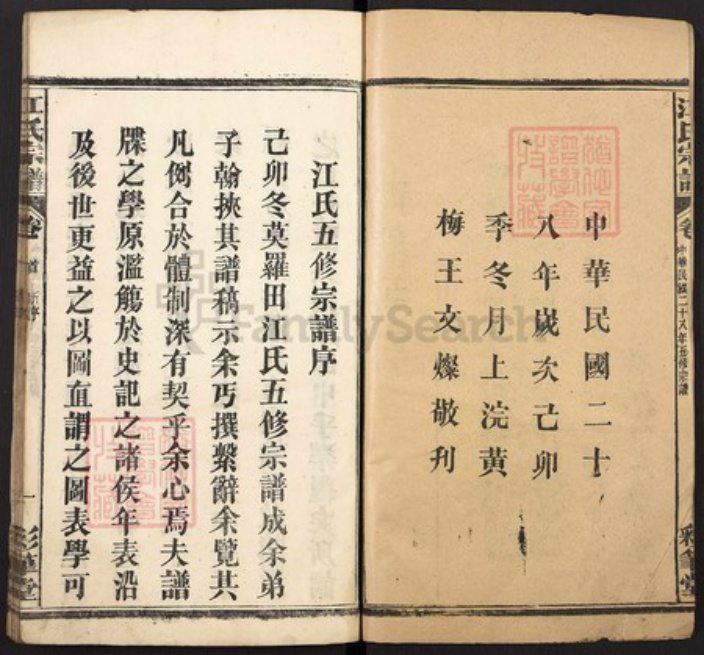 江氏宗譜
卷
中華民國二十八年五修宗譜
彩筆堂
中華民國二十
八年歲次己卯
季冬月上浣黄
梅王文燦敬刋
江氏五修宗譜序
己卯冬莫羅田江氏五修宗譜成余弟
子翰挾其譜稿示余丐撰繫辭余覽其
凡例合於體制深有契乎余心焉夫譜
牒之學原濫觴於史記之諸侯年表沿
及後世更益之以圖直謂之圖表學可
江氏宗譜
卷
首
一
彩筆堂
FamilySearch